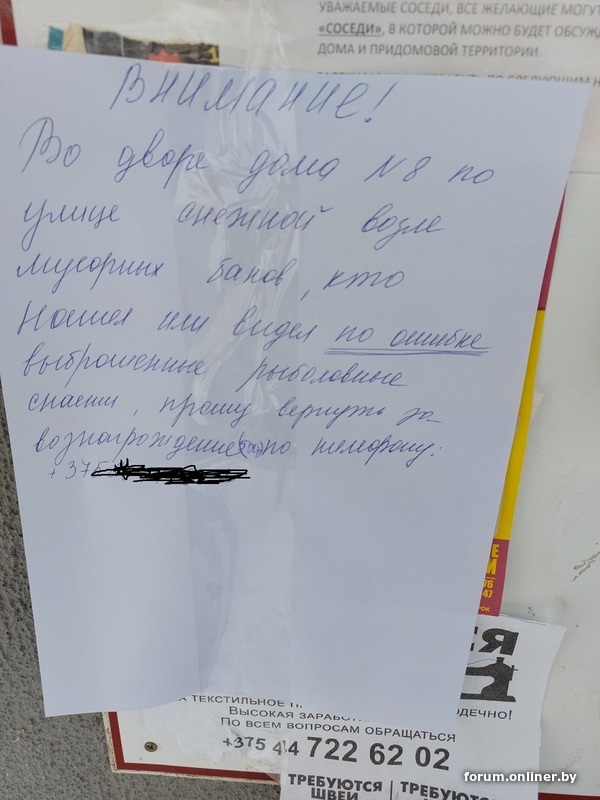 УВАЖАЕМЫЕ СОСЕДИ, ВСЕ ЖЕЛАЮЩИЕ МОГУТ
«СОСЕДИ», В КОТОРОЙ МОЖНО БУДЕТ ОБСУЖ
ДОМА И ПРИДОМОВОЙ ТЕРРИТОРИИ.
Внимание!
Во дворе дома №8 по
улице снежной возле
мусорных баков, кто
Нашел или видел по ошибке
выброшенные рыболовные
снасти, прошу вернуть за
вознагрождение по телефону:
+375
А ТЕКСТИЛЬНОЕ
ВЫСОКАЯ ЗАРАБОТ
ПО ВСЕМ ВОПРОСАМ ОБРАЩАТЬСЯ
+375 44 722 62 02
ТРЕБУЮТСЯ
ШВЕИ
ТРЕБУЮТС
forum.onliner.by